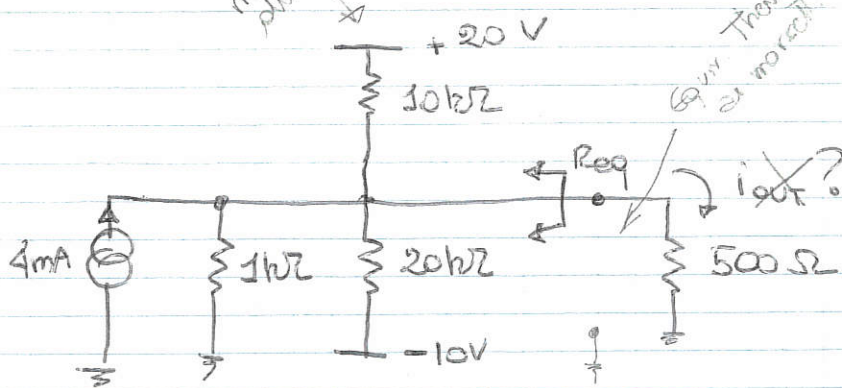 + 20 V
10kΩ
Req
iout?
4mA
1kΩ
20kΩ
500 Ω
-10V